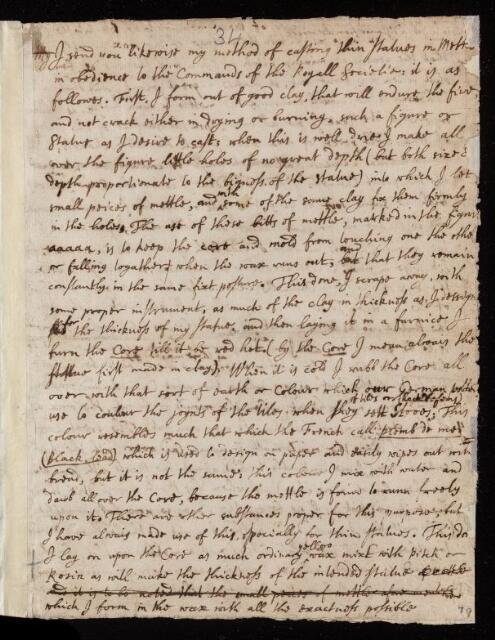 34
I send you likewise my method of casting thin Statues in Mettle
in obedience to the Commands of the Royall Societie: it is as
followes. First, I form out of good clay, that will endure the fire,
and not crack either in drying or burning, such a figure or
Statue as I desire to cast: when this is well dried I make all
over the figure little holes of no great depth (but both size &
depth proportionate to the bigness of the statue) into which I let
small peices of mettle, and with some of the same clay fix them firmly
in the holes. The use of these bitts of mettle, marked in the figure
aaaaa, is to keep the core and mold from touching one the other
or falling together when the wax runs out, and that they remain
constantly in the same fixt posture. This done, I scrape away, with
some proper instrument, as much of the clay in thickness as I design
for the thickness of my statue, and then laying it in a furnice I
burn the Core till it be red hot (by the Core I mean always the
statue first made in clay) When it is cold I rubb the Core all
over with that sort of earth or Colour which our German
use to coulour the joynts of the tiles, when they sett Stoves. This
colour resembles much that which the French call plomb de mer
(black lead) which is used to design on paper and easily wipes out with
bread, but it is not the same: this colour I mix with water and
daub all over the Core, because the mettle is found to runn freely
upon it. There are other substances proper for this purpose, but
I have always made use of this, especially for thin statues. This done
I lay on upon the Core as much ordinary yellow wax mixt with Pitch or
Rosin as will make the thickness of the intended statue
and it is to be noted that the small peices of mettle
which I form in the wax with all the exactness possible
79